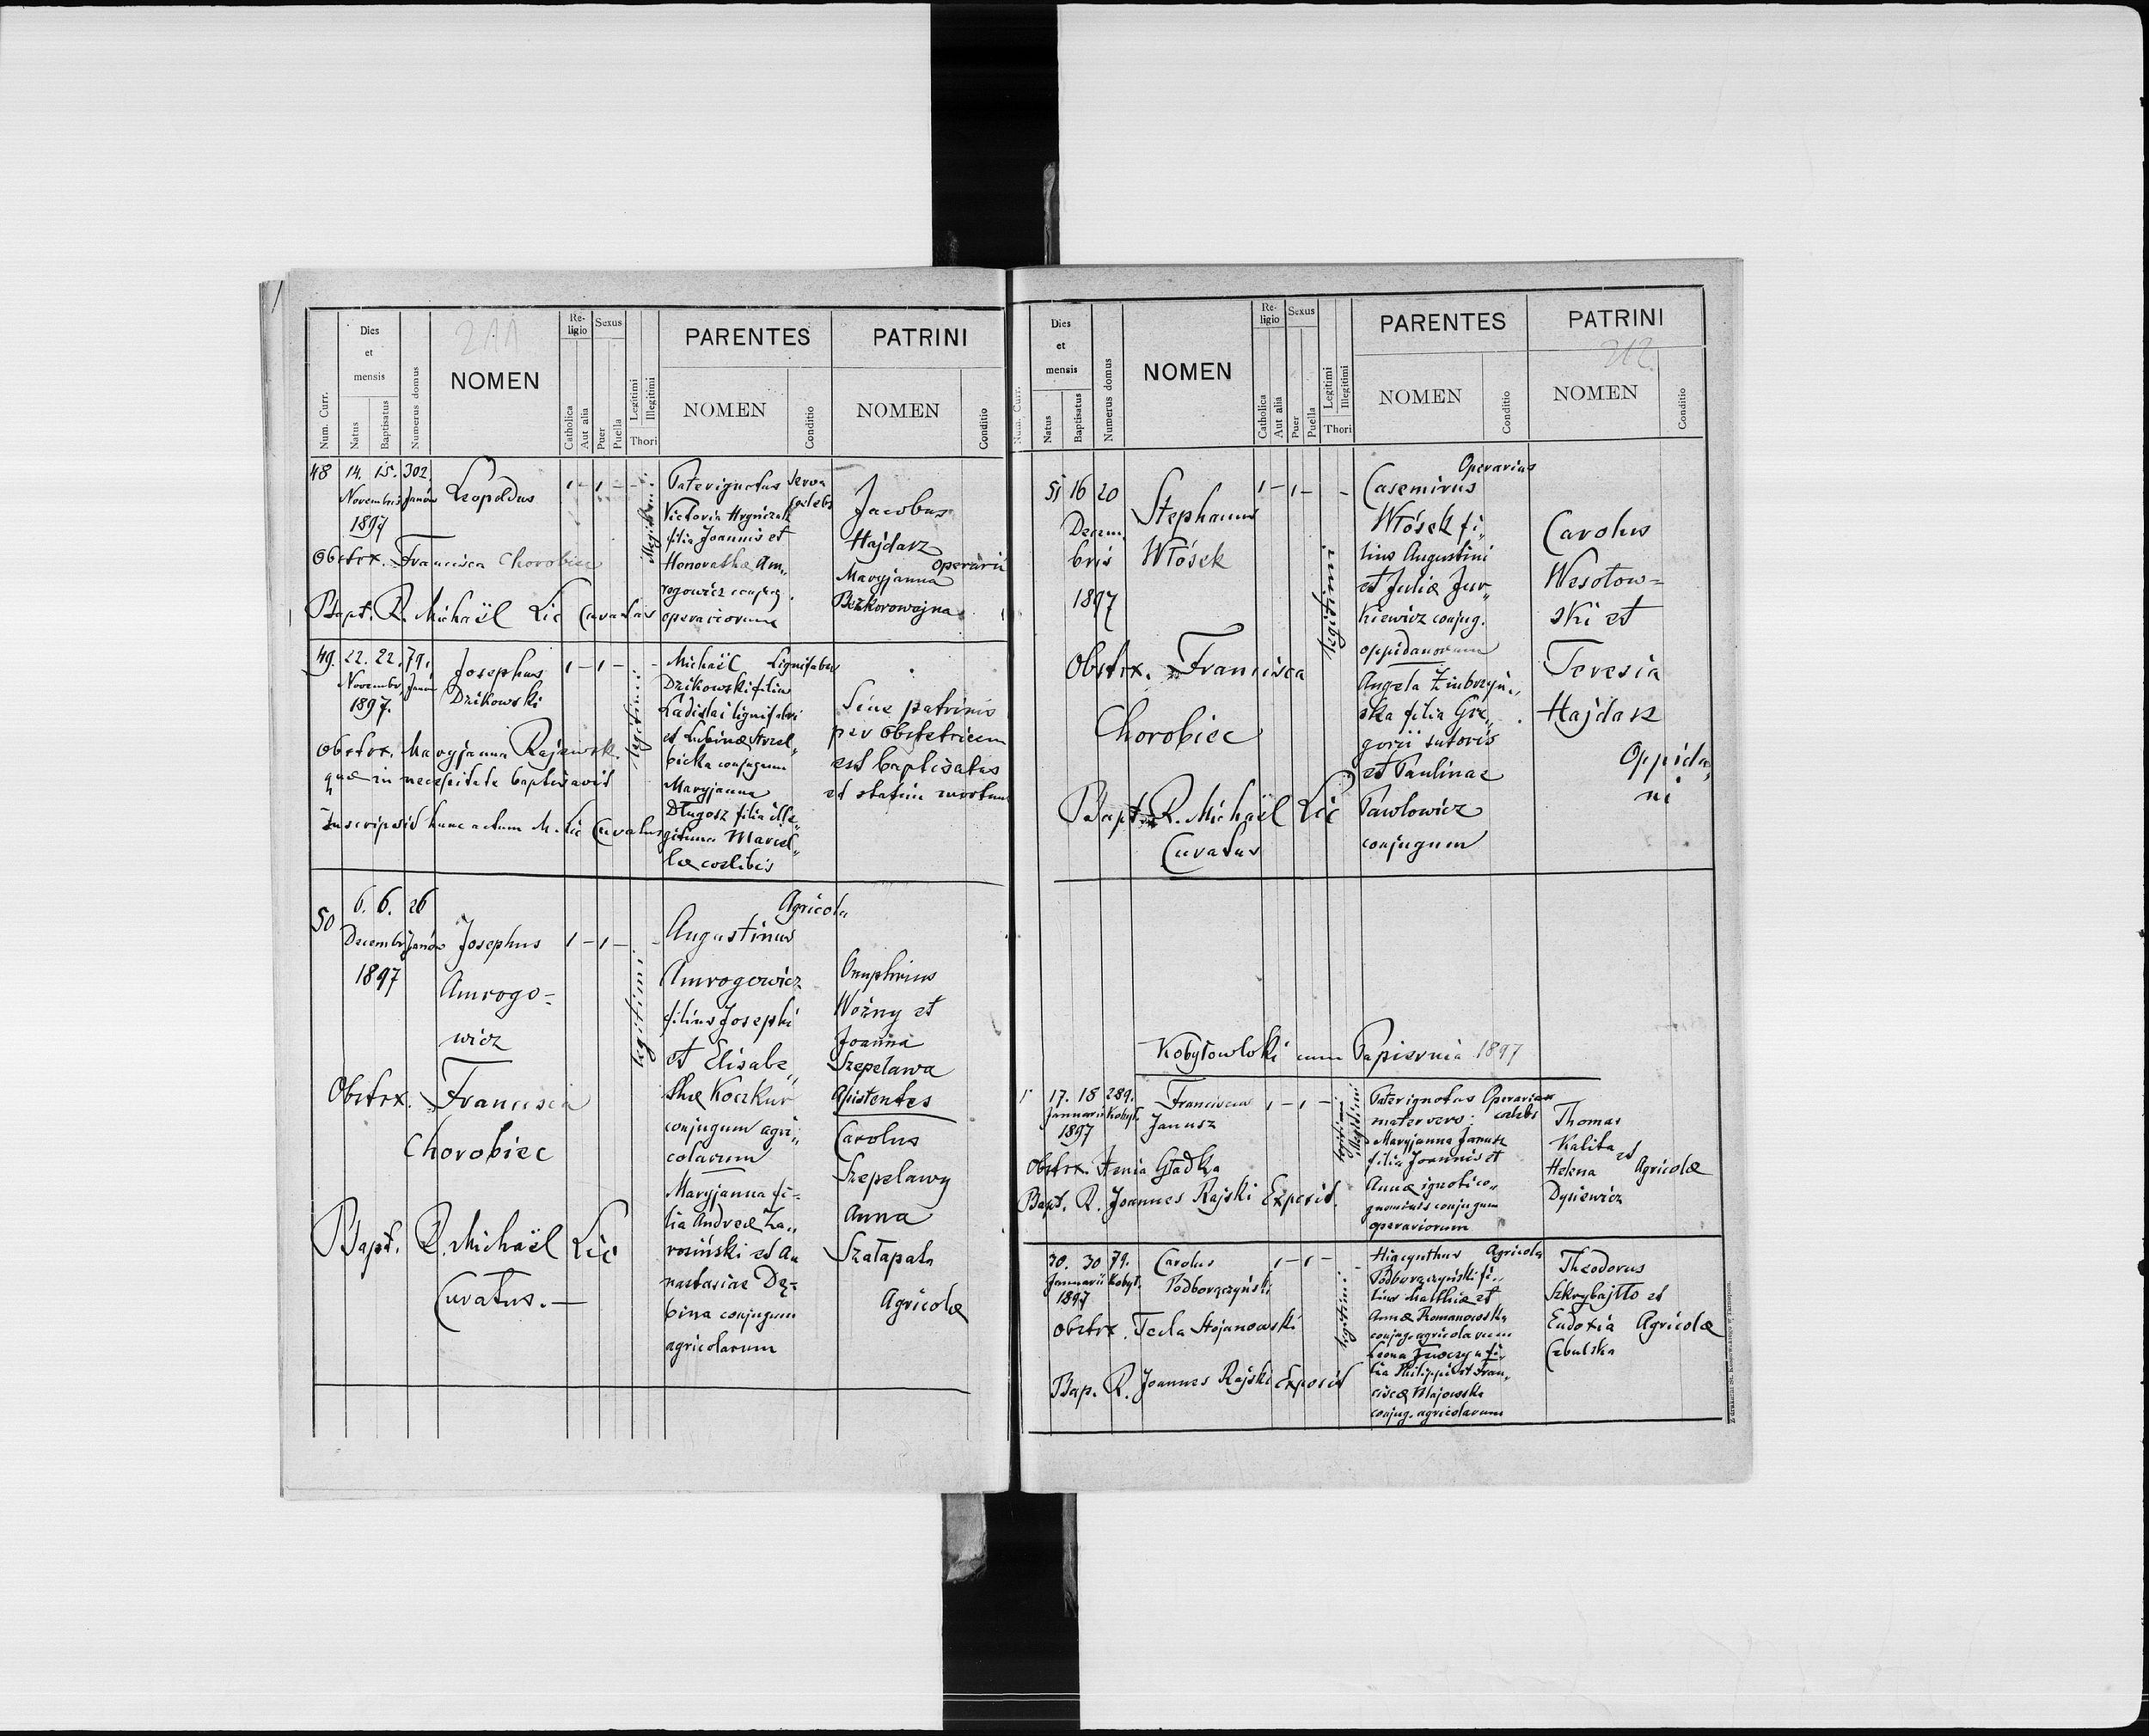 211
Num. Curr.
Dies et mensis
Natus
Baptisatus
Numerus domus
NOMEN
Religio
Catholica
Aut alia
Sexus
Puer
Puella
Legitimi
Illegitimi
Thori
PARENTES
NOMEN
Conditio
PATRINI
NOMEN
Conditio
48 14. 15. 302.
Novembris Janów
1897
Leopoldus
1 - 1 - -
Illegitimi
Pater ignotus serva
coelebs
Victoria Hryńczak
filia Joannis et
Honorathæ Am„
rogowicz conjug.
operariorum
Jacobus
Hajdarz
operarii
Maryjanna
Bezkorowajna
Obstrx. Francisca Chorobiec
Bapt. R. Michaël Lić Curatus
49. 22. 22. 79.
Novembr. Janów
1897.
Josephus
Dzikowski
1 - 1 - -
legitimi
Michaël Lignifaber
Dzikowski filius
Ladislai lignifabri
et Lubinæ Strzel„
bicka conjugum
Maryjanna
Długosz filia ille„
gitima Marcel„
læ coelibis
Sine patrinis
per obstetricem
est baptisatus
et statim mortuus
Obstrx. Maryjanna Rajewsk.
quæ in necessitate baptisavit
Inscripsit hunc actum M. Lić Curatus
50 6. 6. 26
Decembr. Janów
1897
Josephus
Amrogo-
wicz
1 - 1 - -
legitimi
Agricola
Augustinus
Amrogowicz
filius Josephi
et Elisabe„
thæ Koczkur
conjugum agri„
colarum
Maryjanna fi-
lia Andreæ Za„
rosiński et An
nastasiae Dę-
bina conjugum
agricolarum
Onuphrius
Woźny et
Joanna
Szepelawa
Assistentes
Carolus
Szepelawy
Anna
Szałapata
Agricolæ
Obstrx. Francisca
Chorobiec
Bapt. R. Michaël Lić
Curatus. —
Num. Curr.
Dies et mensis
Natus
Baptisatus
Numerus domus
NOMEN
Religio
Catholica
Aut alia
Sexus
Puer
Puella
Legitimi
Illegitimi
Thori
PARENTES
NOMEN
Conditio
PATRINI
212
NOMEN
Conditio
51 16 20
Decem
bris
1897
Stephanus
Włósek
1 - 1 - -
legitimi
Operarius
Casemirus
Włósek fi„
lius Augustini
et Juliæ Jur„
kiewicz conjug.
oppidanorum
Angela
ska filia Gre„
gorii sutoris
et Paulinae
Pawlowicz
conjugum
Carolus
Wesołow=
ski et
Teresia
Hajdarz
Oppida„
ni
Obstrx. Francisca
Chorobiec
Bapt. R. Michaël Lić
Curatus
Kobyłowłoki cum Papiernia 1897
1 17. 18 289.
Januarii Kobył.
1897
Franciscus
Janusz
1 - 1 - -
legitimi
Illegitimi
Pater ignotus Operaria
mater vero: coelebs
Maryjanna Janusz
filia Joannis et
Annæ ignoti co„
gnominis conjugum
operariorum
Thomas
Kaliba et
Helena Agricolæ
Dysiewicz
Obstrx. Xenia Gładka
Bapt. R. Joannes Rajski Exposit.
30. 30 79.
Januarii Kobył.
1897
Carolus
Podborączyński
1 - 1 - -
legitimi
Hiacynthus Agricola
Podborączyński fi„
lius Matthiæ et
Annæ Romanowska
conjug. agricolarum
lia Philippi et Fran„
ciscæ Majowska
conjug. agricolarum
Theodorus
Szkrybajłło et
Eudoxia Agricolæ
Cebulska
Obstrx. Tecla Stojanowski
Bap. R. Joannes Rajski Exposit